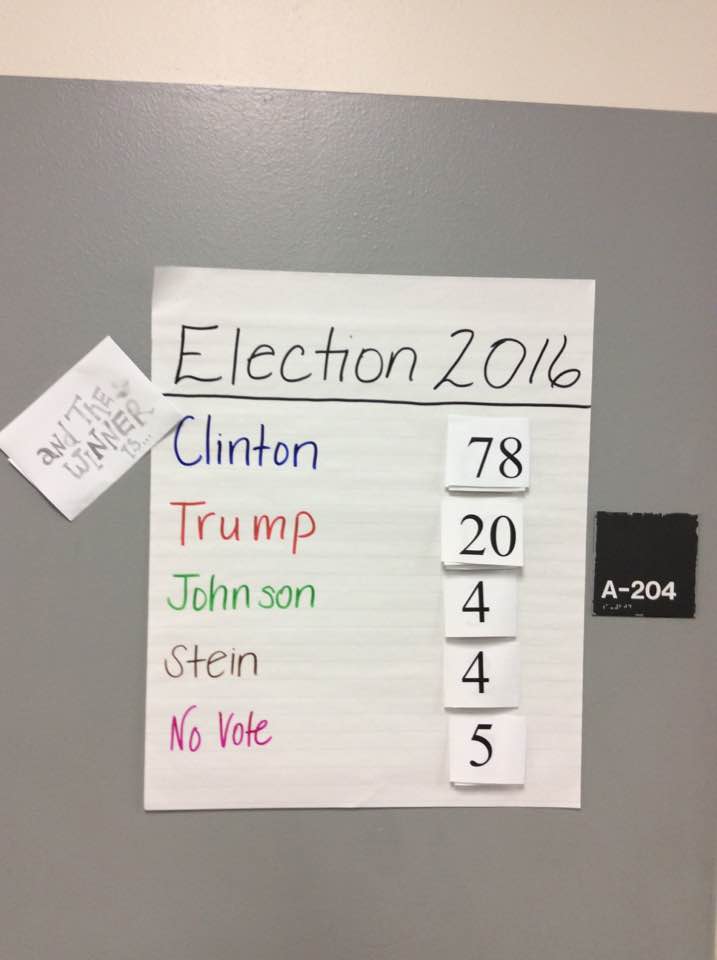 Election 2016
and The
WINNER
is...
Clinton 78
Trump 20
Johnson 4
Stein 4
No Vote 5
A-204